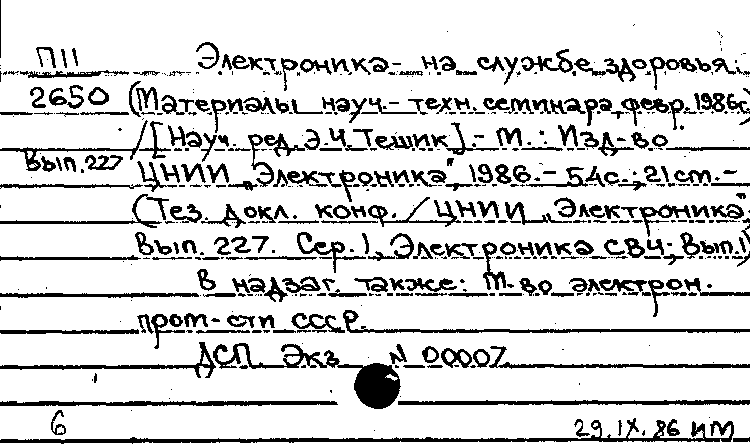 П11 Электроника - на службе здоровья.
2650 (Материалы науч.-техн. семинара, февр. 1986г)
/ [Науч. ред. Э.Ч. Тешик]. - М.: Изд-во
Вып. 227 ЦНИИ „Электроника", 1986. - 54с.; 21см. -
(Тез. докл. конф. / ЦНИИ „Электроника";
Вып. 227. Сер. 1, Электроника СВЧ; Вып. 1)
В надзаг. также: М-во электрон.
пром-сти СССР.
ДСП. Экз N 00007
6 29.IX.86 ИМ